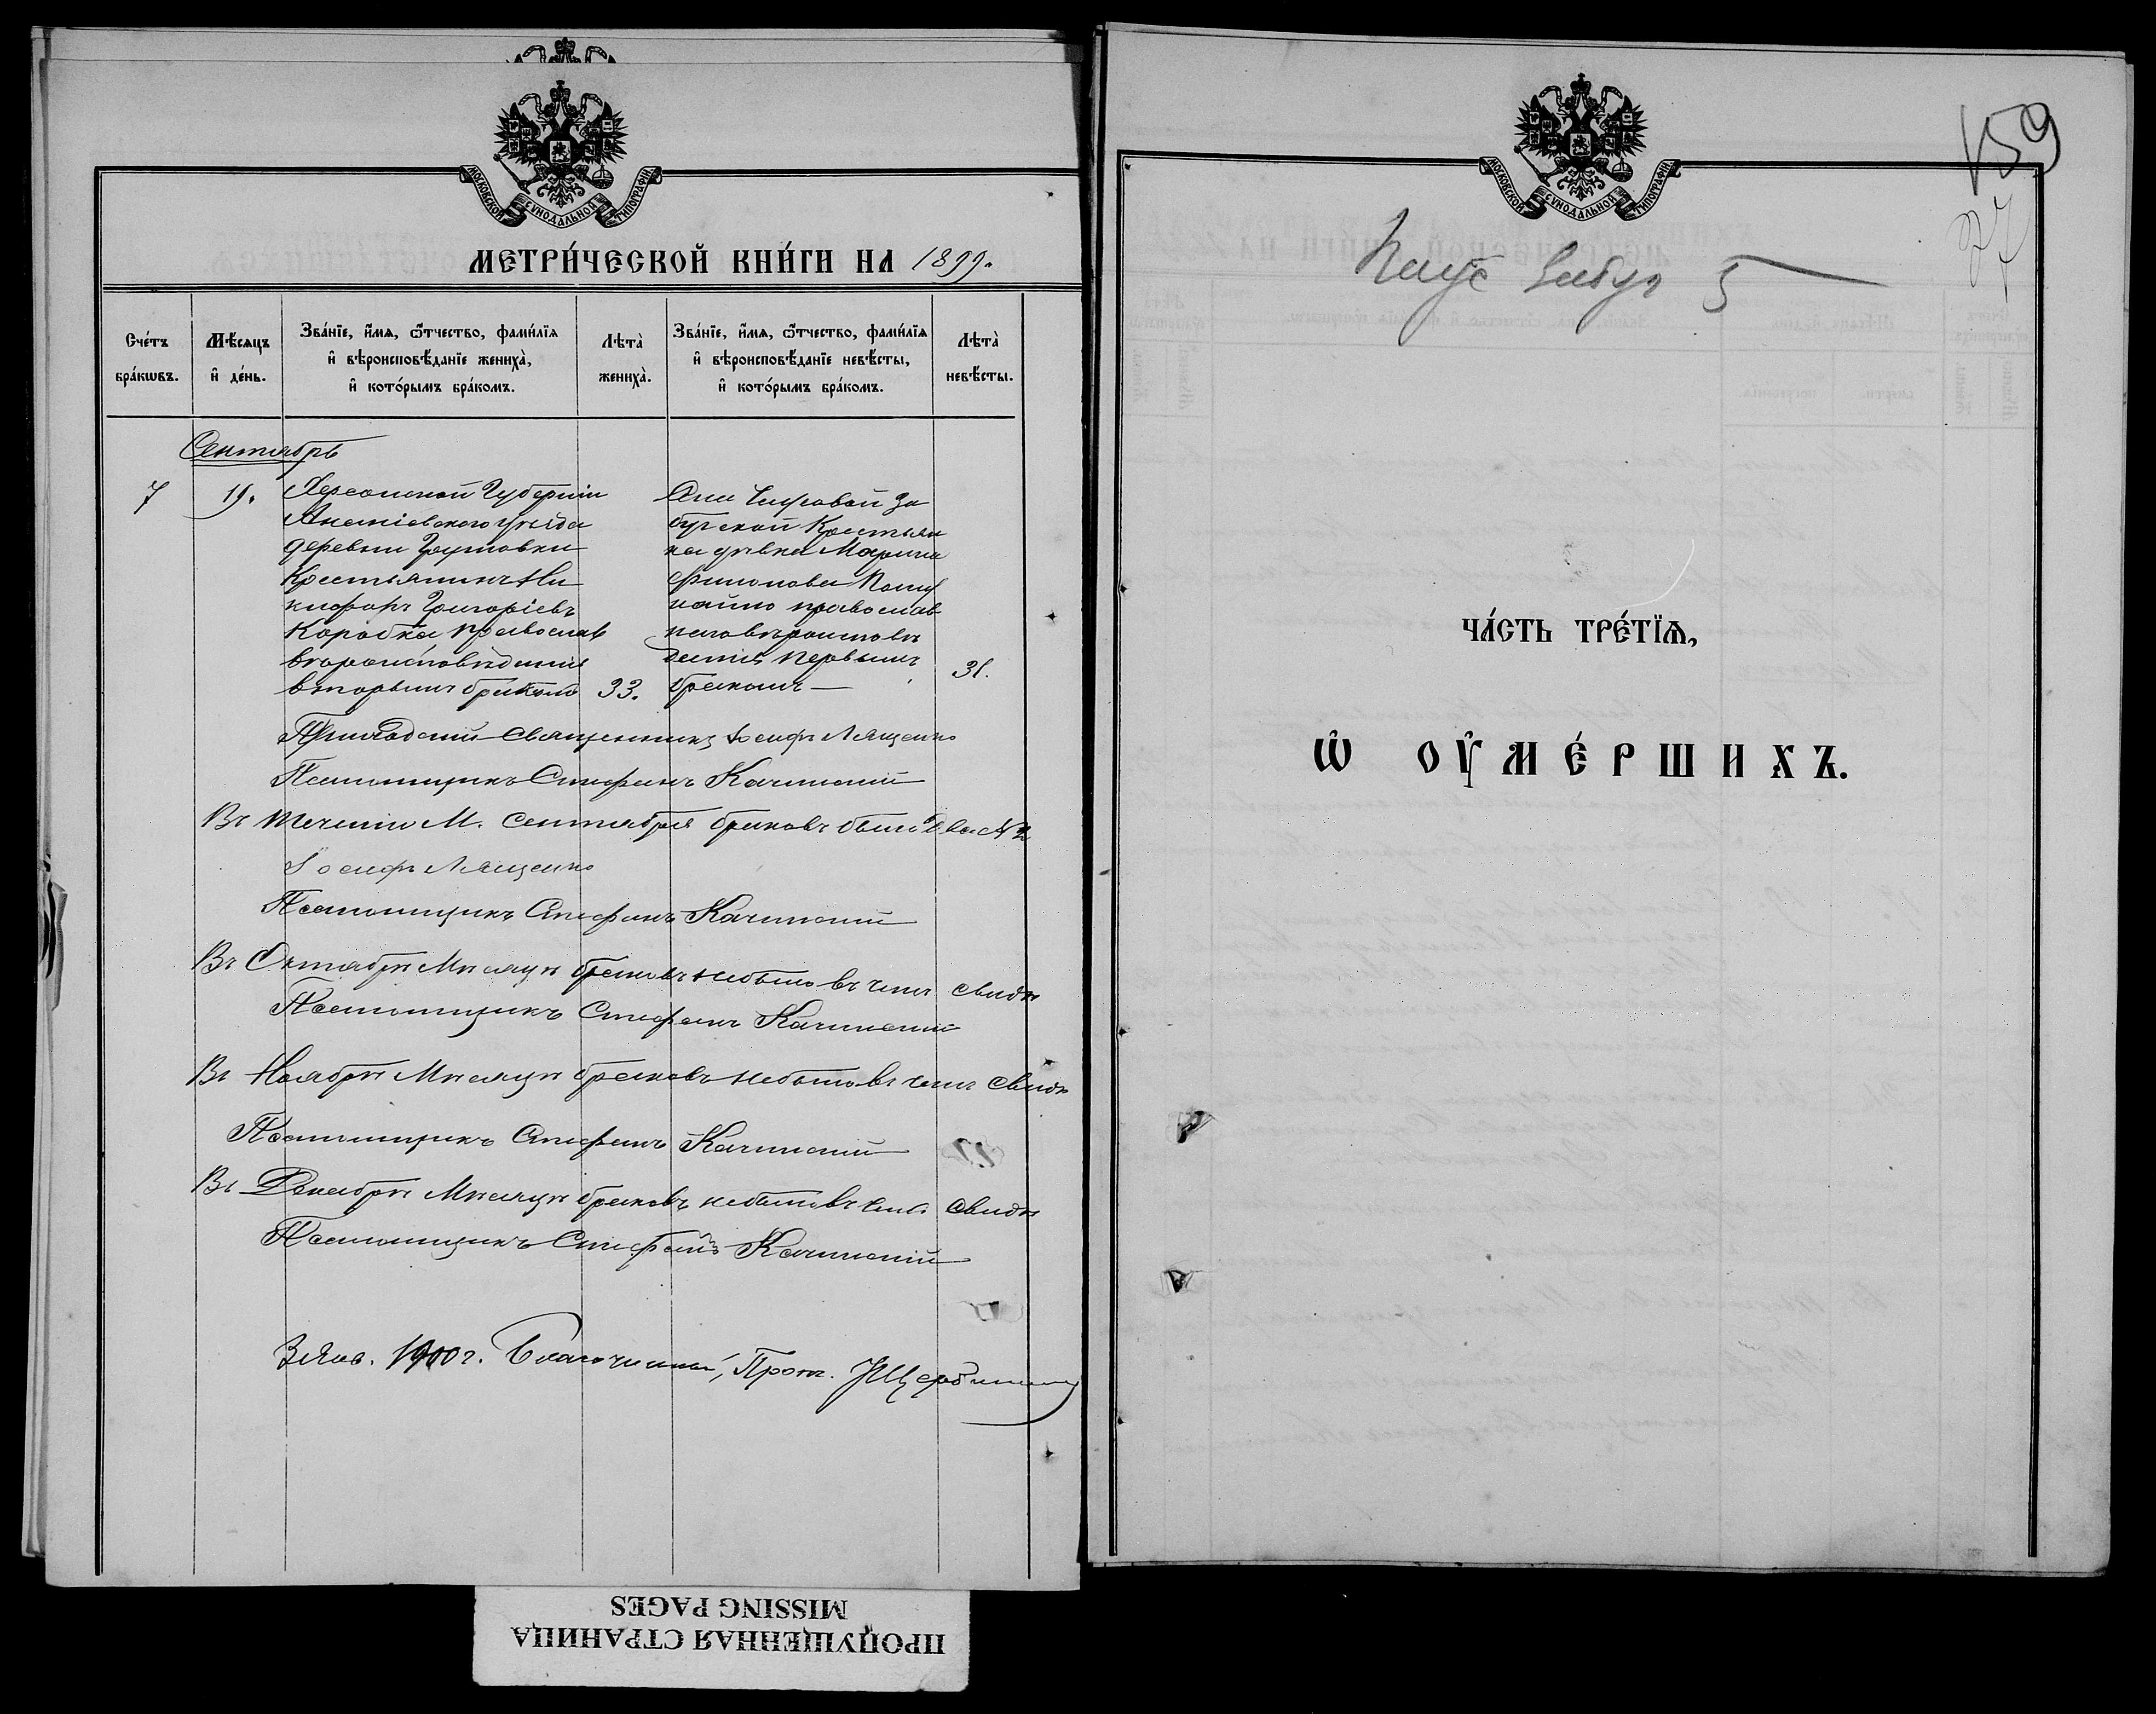 МОСКОВСКОЙ СУНОДАЛЬНОЙ ТИПОГРАФІИ
МЕТРИ́ЧЕСКОЙ КНИ́ГИ НА 1899.
Сче́тъ бра́кѡвъ.
Мѣ́сяцъ и҆ де́нь.
Зва́нїе, и҆́мѧ, ѻ҆́тчество, фами́лїѧ и҆ вѣроисповѣ́данїе жениха̀, и҆ кото́рымъ бра́комъ.
Лѣта̀ жениха̀.
Зва́нїе, и҆́мѧ, ѻ҆́тчество, фами́лїѧ и҆ вѣроисповѣ́данїе невѣ́сты, и҆ кото́рымъ бра́комъ.
Лѣта̀ невѣ́сты.
Сентябрь
7
19.
Херсонской Губерніи
Ананіевского уѣзда
деревни
Крестьянинъ Ни
кифоръ Григоріевъ
Коробка православ
вероисповѣданія
вторымъ бракомъ
33.
бугской Крестьян
ка дѣвка Марина
православ
наго вѣроисповѣ
данія, первымъ
бракомъ —
31.
Приходскій Священникъ Іосифъ Лященко
Псаломщикъ Стефанъ Качинскій
Въ теченіи М. Сентября браковъ было два № 2
Іосифъ Лященко
Псаломщикъ Стефанъ Качинскій
Въ Октябрѣ Мѣсяцѣ браковъ небыло въ чемъ свидѣ
Псаломщикъ Стефанъ Качинскій
Въ Ноябрѣ Мѣсяцѣ браковъ небыло въ чемъ свидѣ
Псаломщикъ Стефанъ Качинскій
Въ Декабрѣ Мѣсяцѣ браковъ небыло въ чемъ свидѣ
Псаломщикъ Стефанъ Качинскій
3 Янв. 1900 г. Благочинный, Прот.
МОСКОВСКОЙ СУНОДАЛЬНОЙ ТИПОГРАФІИ
159
27
5
ЧА́СТЬ ТРЕ́ТЇѦ,
Ѡ҆ ОУ҆МЕ́РШИХЪ.
ПРОПУЩЕННАЯ СТРАНИЦА
MISSING PAGES